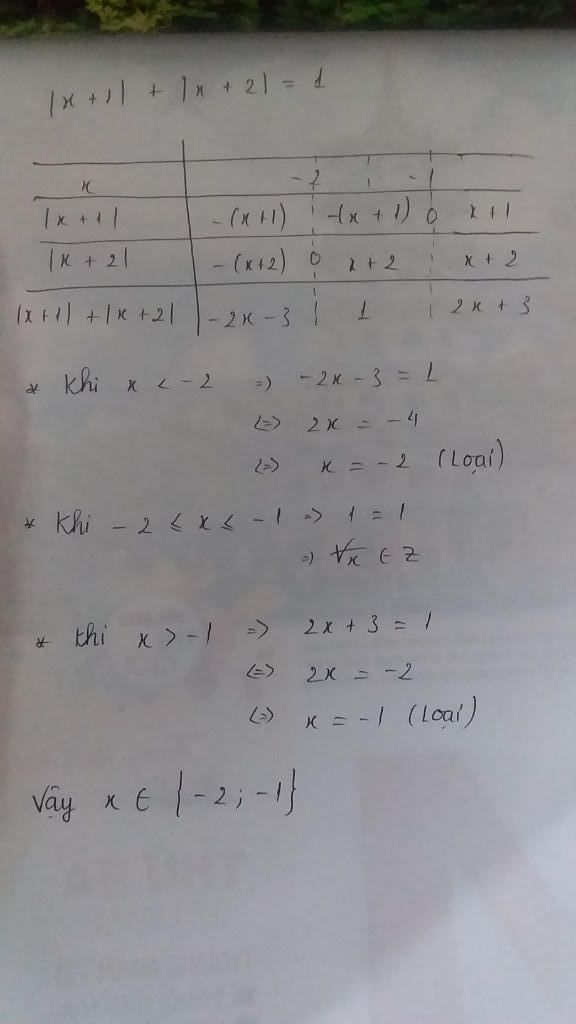 |x + 1| + |x + 2| = 1
x -2 -1
|x + 1| -(x+1) -(x + 1) 0 x+1
|x + 2| -(x+2) 0 x + 2 x + 2
|x+1| + |x+2| -2x - 3 1 2x + 3
* Khi x < -2 => -2x - 3 = 1
<=> 2x = -4
<=> x = -2 (Loại)
* Khi -2 ≤ x ≤ -1 => 1 = 1
=> ∀x ∈ Z
* Khi x > -1 => 2x + 3 = 1
<=> 2x = -2
<=> x = -1 (Loại)
Vậy x ∈ {-2; -1}